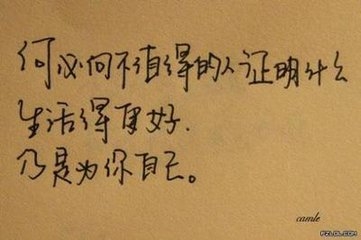 何必向不值得的人证明什么
生活得更好.
乃是为你自己。
camle
PZLGL.COM